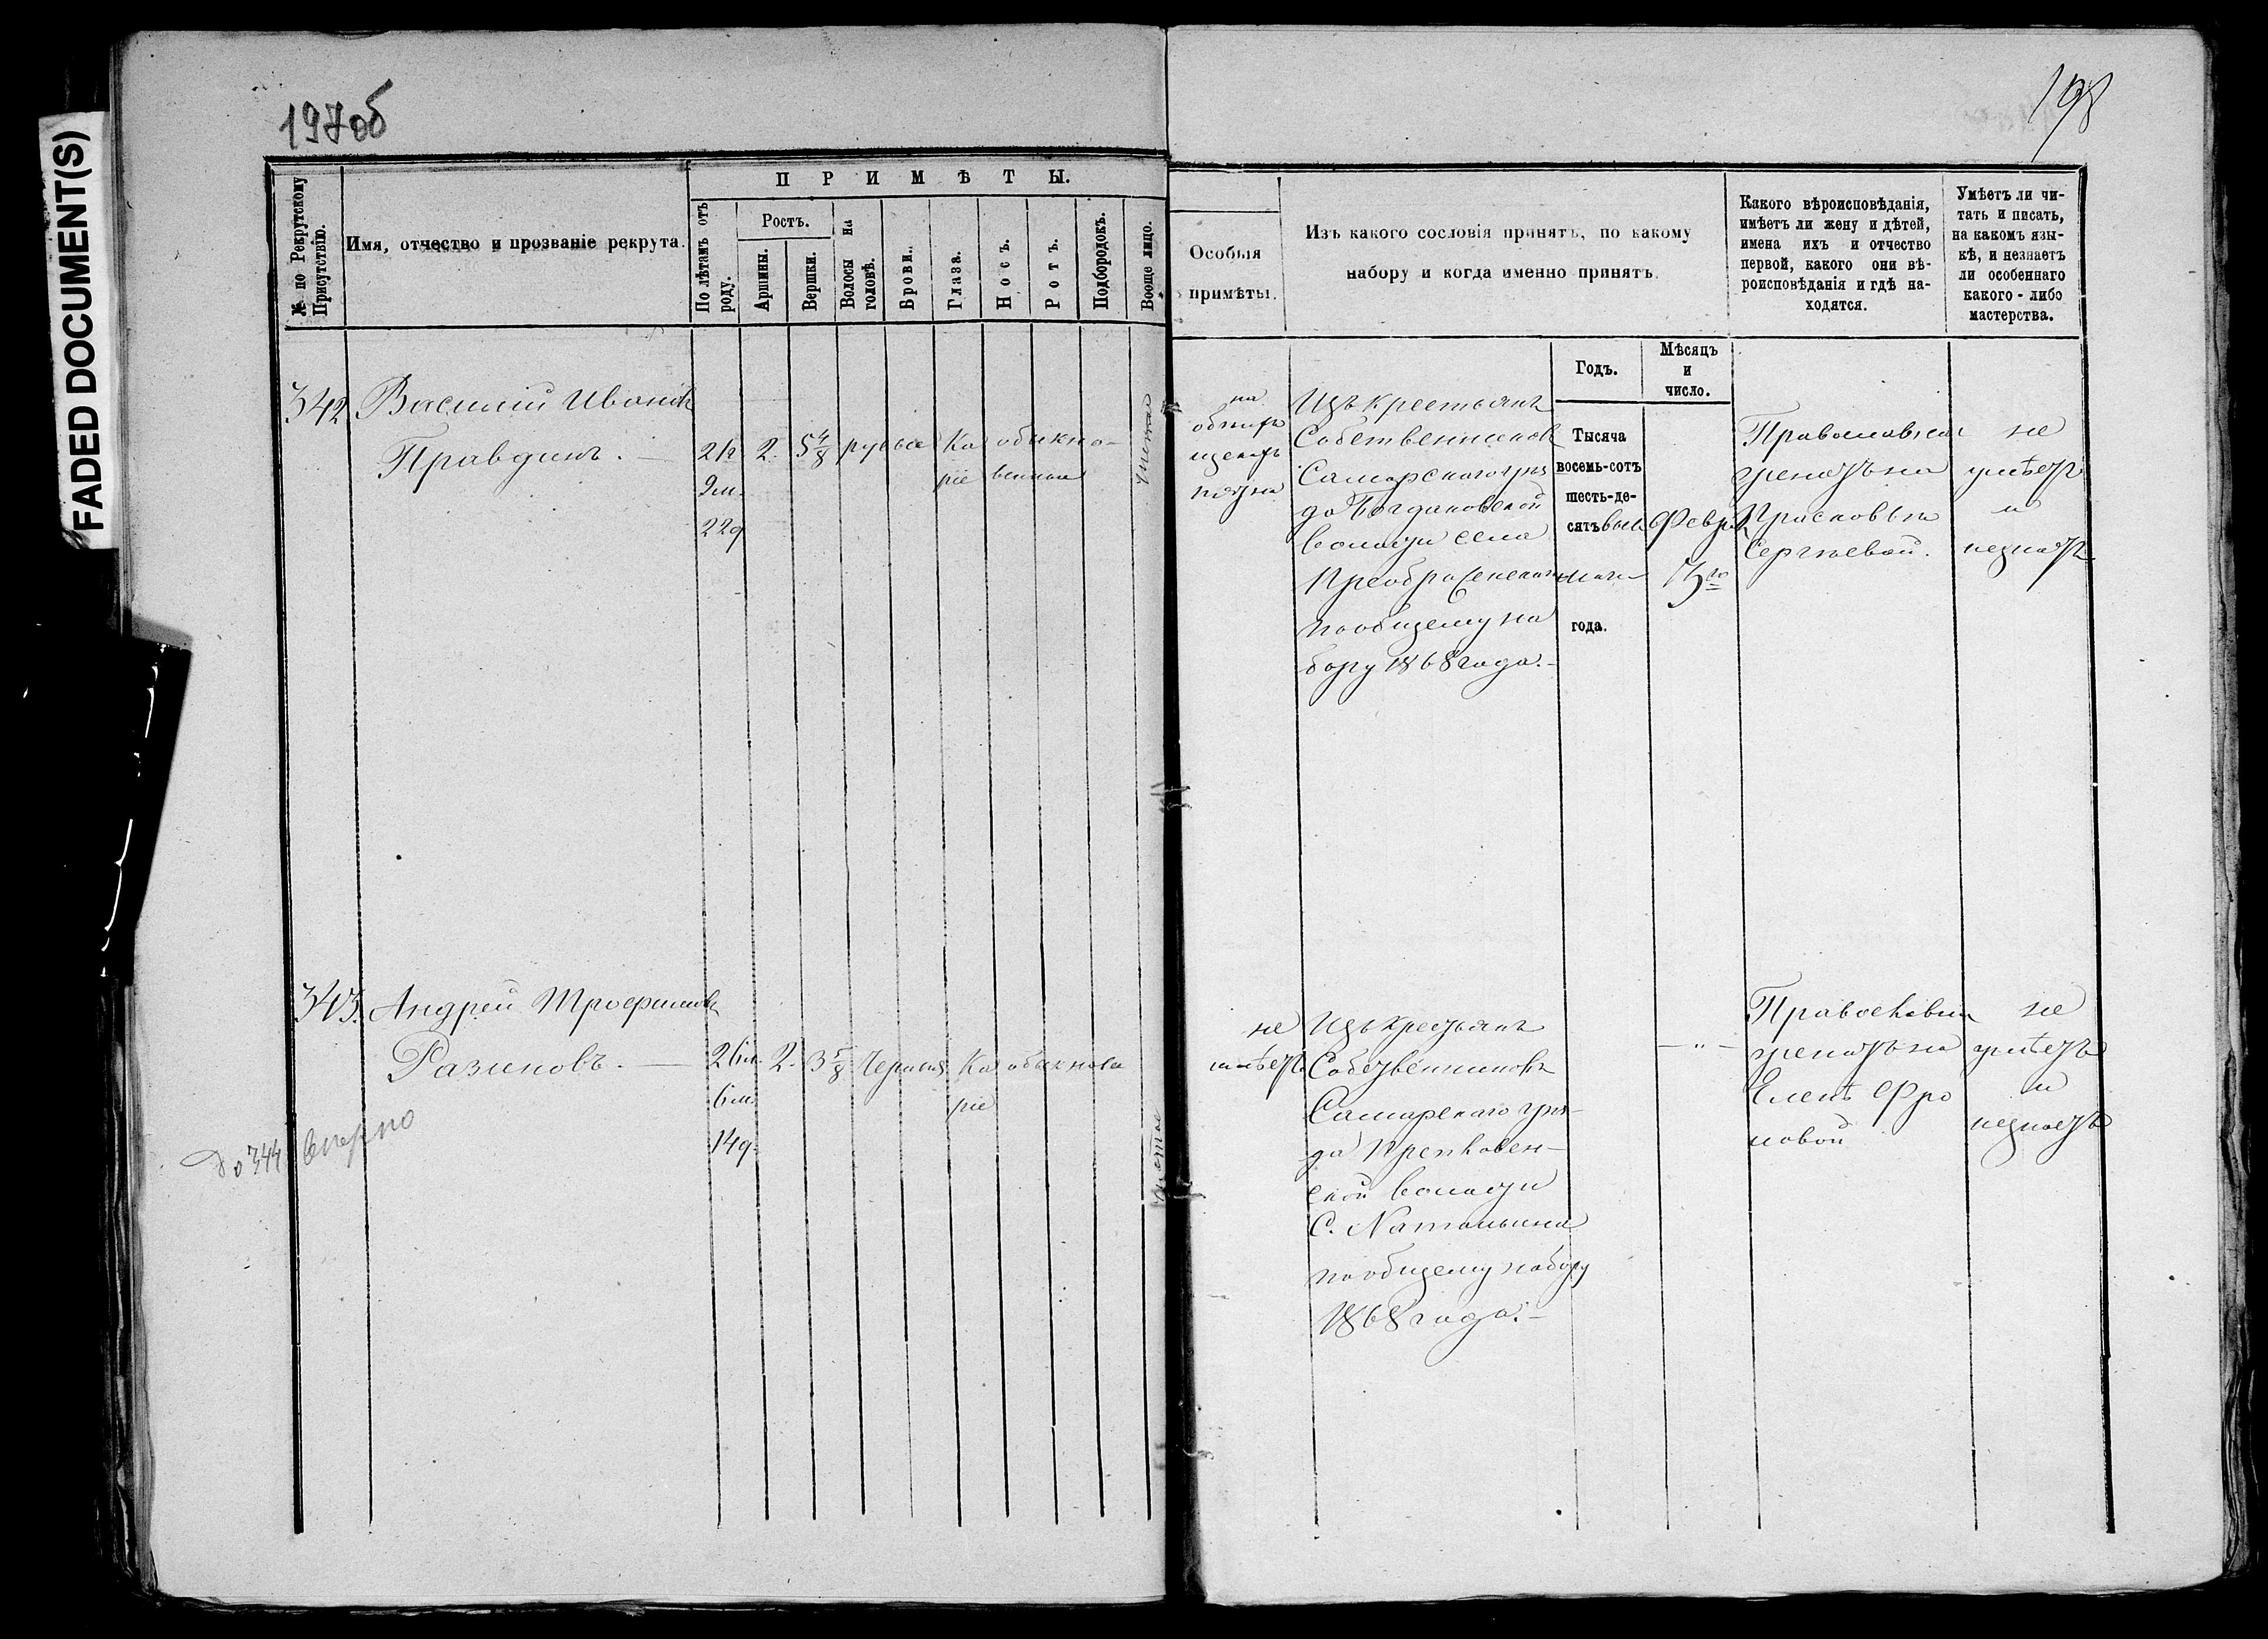 FADED DOCUMENT(S)
197об
198
№ по Рекрутскому Присутствію.
Имя, отчество и прозваніе рекрута.
ПРИМѢТЫ.
По лѣтамъ отъ роду.
Ростъ.
Аршины.
Вершки.
Волосы на головѣ.
Брови.
Глаза.
Носъ.
Ротъ.
Подбородокъ.
Вообще лицо.
Особыя
примѣты.
Изъ какого сословія принятъ, по какому
набору и когда именно принятъ
Какого вѣроисповѣданія,
имѣетъ ли жену и дѣтей,
имена ихъ и отчество
первой, какого они вѣ-
роисповѣданія и гдѣ на-
ходятся.
Умѣетъ ли чи-
тать и писать,
на какомъ язы-
кѣ, и незнаетъ
ли особеннаго
какого-либо
мастерства.
Годъ.
Мѣсяцъ
и
число.
342
Василій Ивановъ
Правдинъ.
21л
9м.
22д
2.
5 4/8
русые
Ка
ріе
обыкно-
венные
чистое
на
Изъ крестьянъ
Собственниковъ
Самарскаго уѣз
да Богдановской
волости села
Преображенскаго
по общему на
бору 1868 года.-
Тысяча
восемь-сотъ
шесть-де-
сятъ
года.
Февр
Православнаго
женатъ на
Прасковьи
Сергѣевой.
не
умѣетъ
и
незнаетъ
343.
Андрей Трофимовъ
Разиновъ.
26л.
6м.
14д.
2.
3 5/8
Черныя
Ка
ріе
обыкнове
чистое
не
имѣетъ
Изъ крестьянъ
Собственниковъ
Самарскаго уѣз-
да
ской волости
С. Натальина
по общему набору
1868 года.-
- " -
Православнаго
женатъ на
Еленѣ Фро
ловой
не
умѣетъ
и
незнаетъ
До 344 вѣрно